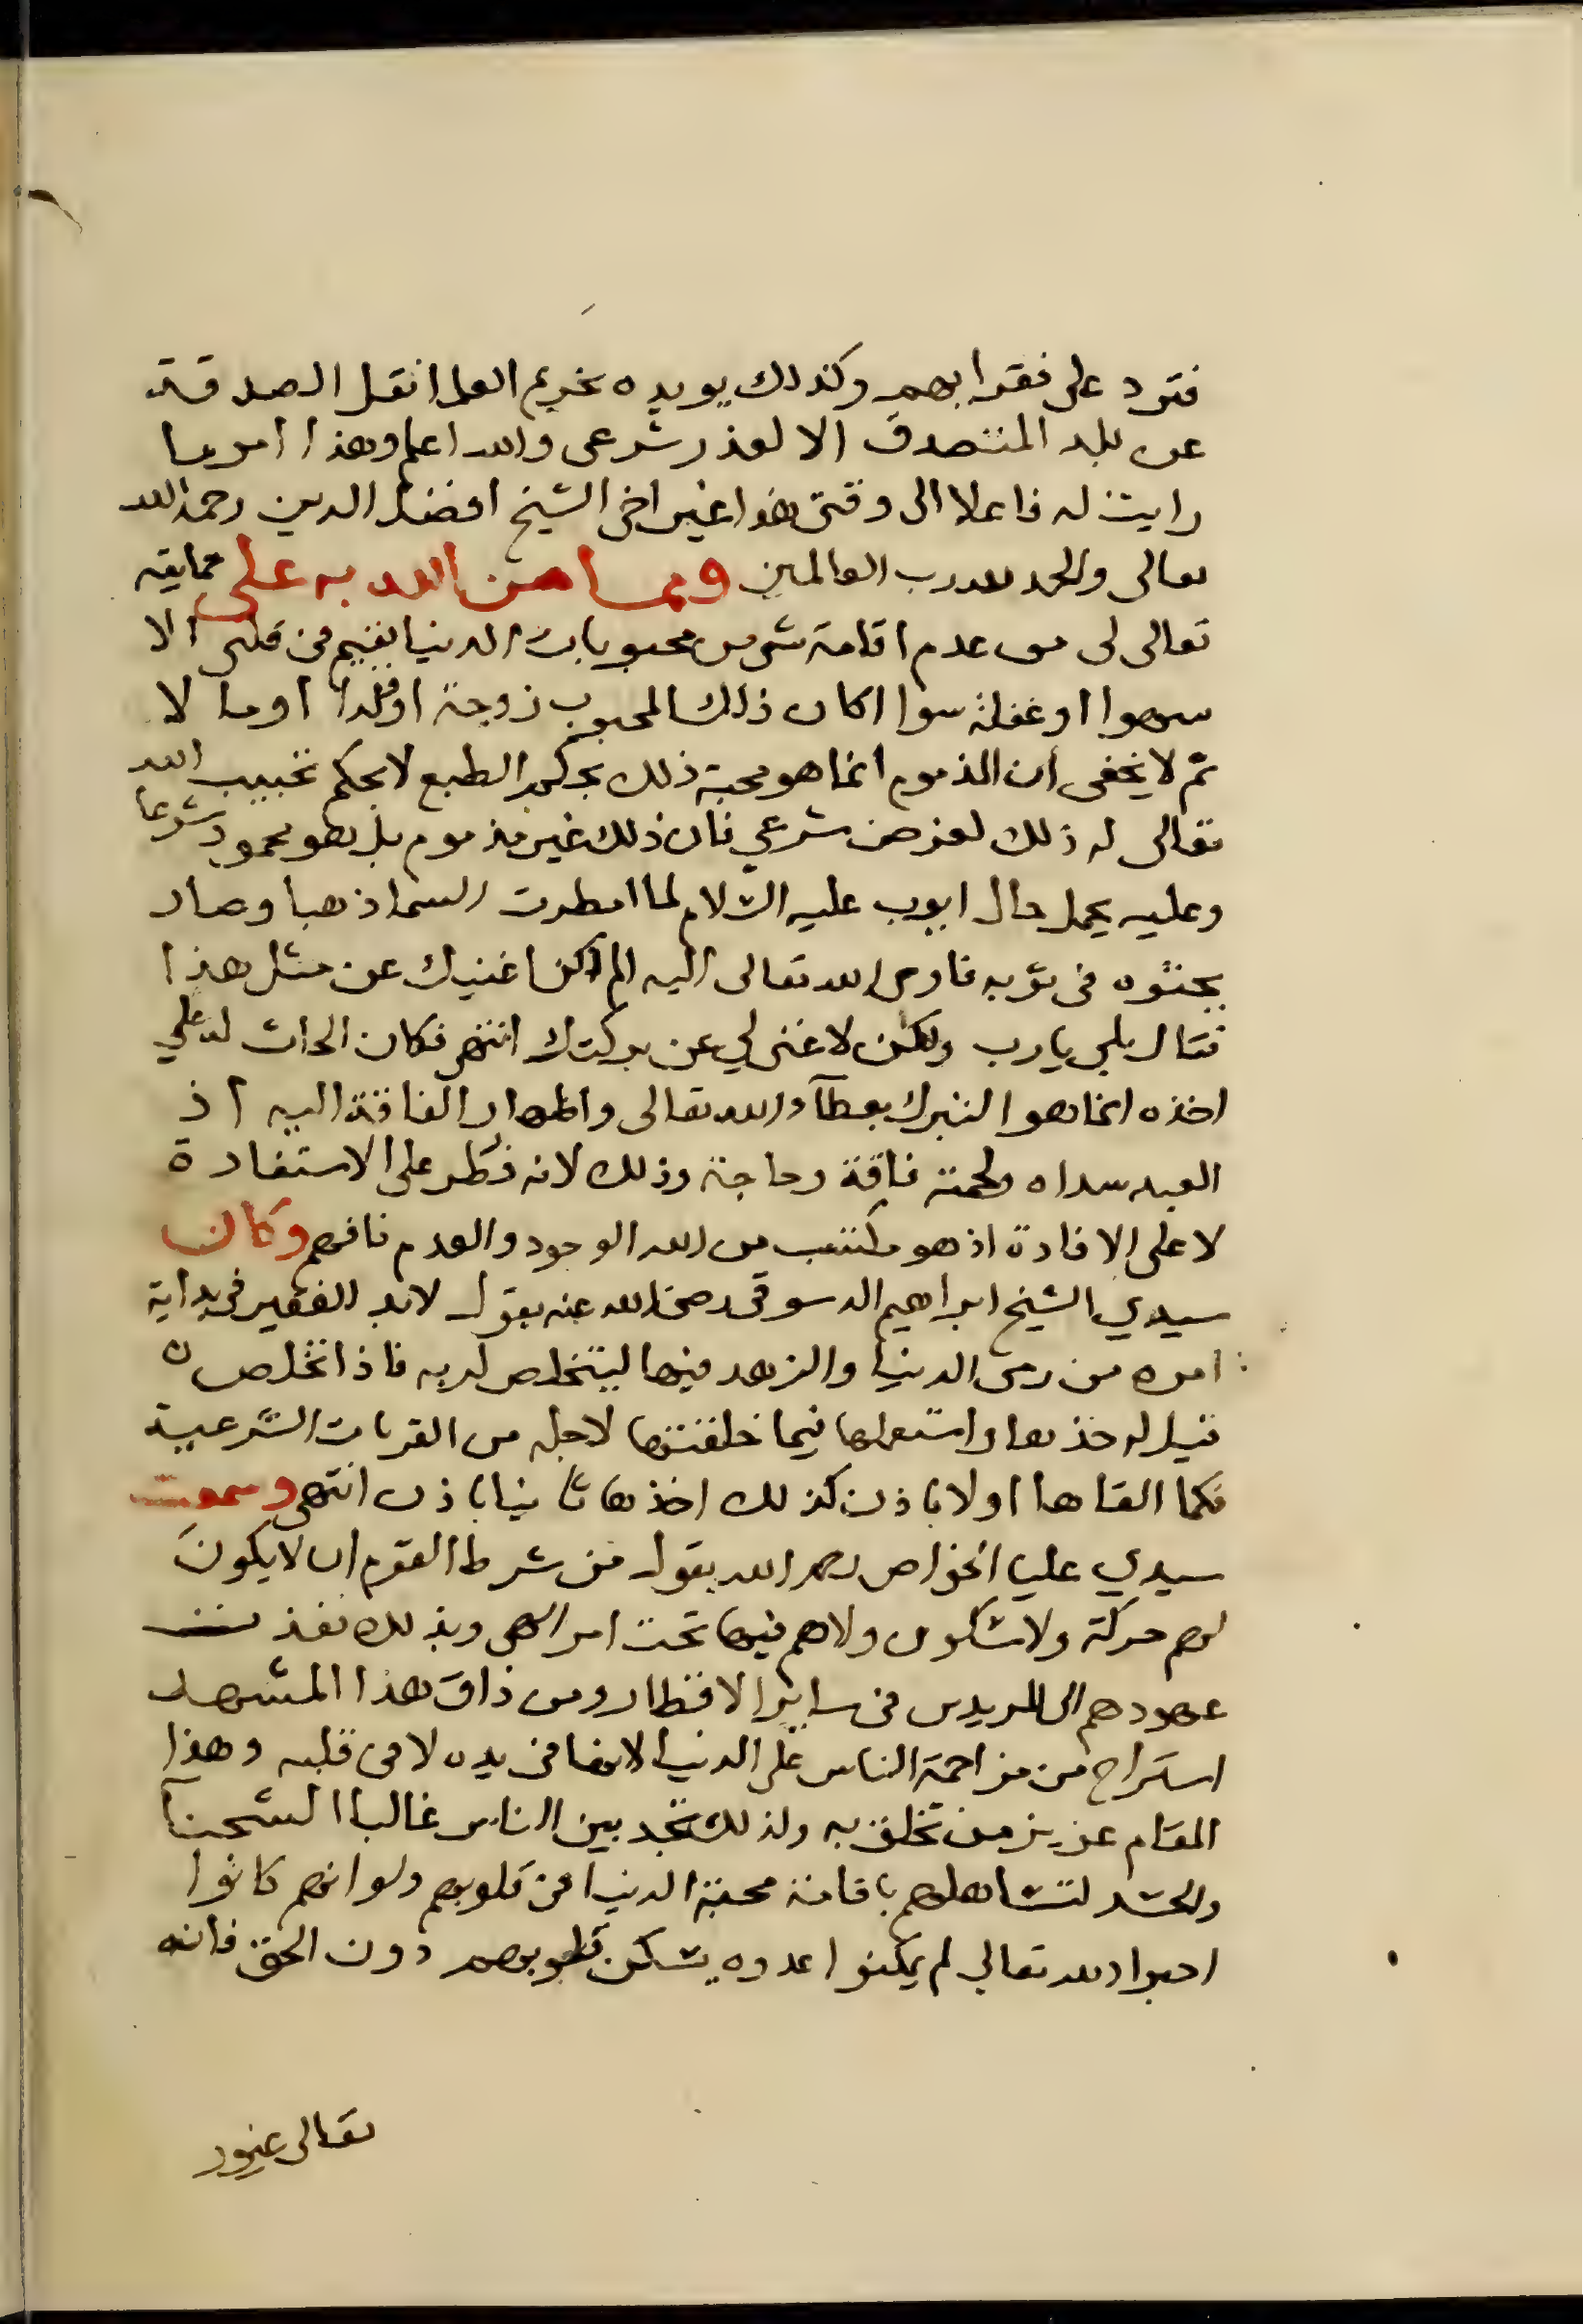 فترد على فقرابهم وكذلك يويده تحريم العلما نقل الصدقة
عن بلد المتصدق الا لعذر شرعى والله اعلم وهذا امر ما
رايت له فاعلا الى وقتى هذا غير اخى الشيخ افضل الدين رحمه الله
تعالى والحمد لله رب العالمين ومما من الله به على حمايته
تعالى لى من عدم اقامة شى من محبوبات الدنيا يقيم فى قلبى الا
سهوا او غفلة سوا اكان ذلك المحبوب زوجة او ولدا او مالا
ثم لا يخفى أن المذموم انما هو محبة ذلك بحكم الطبع لا بحكم تحبيب الله
تعالى له ذلك لغرض شرعي فان ذلك غير مذموم بل هو محمود شرعا
وعليه يحمل حال ايوب عليه السلام لما امطرت السما ذهبا وصار
يحثوه فى ثوبه فاوحى الله تعالى اليه الم اكن اغنيك عن مثل هذا
فقال بلي يارب ولكن لا غنى لي عن بركتك انتهى فكان الحاث له علي
اخذه انما هو التبرك بعطآء الله تعالى واظهار الفاقة اليه اذ
العبد سداه ولحمته فاقة وحاجة وذلك لانه فطر على الاستفادة
لا على الافادة اذ هو مكتسب من الله الوجود والعدم فافهم وكان
سيدي الشيخ ابراهيم الدسوقى رضى الله عنه يقول لابد للفقير فى بداية
امره من رمى الدنيا والزهد فيها ليتخلص لربه فاذا تخلص
قيل له خذها واستعملها فيما خلقتها لاجله من القربات الشرعية
فكما القاها اولا باذن كذلك اخذها ثانيا باذن انتهى وسمعت
سيدي عليا الخواص رحمه الله يقول من شرط القوم ان لا يكون
لهم حركة ولا سكون ولا هم فيها تحت امر الهى وبذلك نفذت
عهودهم الى المريدين فى ساير الاقطار ومن ذاق هذا المشهد
استراح من مزاحمة الناس على الدنيا لانها فى يده لا فى قلبه وهذا
المقام عزيز من تخلق به ولذلك تجد بين الناس غالبا الشحنآ
والحسد لتساهلهم باقامة محبة الدنيا فى قلوبهم ولو انهم كانوا
احبوا الله تعالي لم يمكنوا عدوه يسكن قلوبهم دون الحق فانه
تعالى غيور